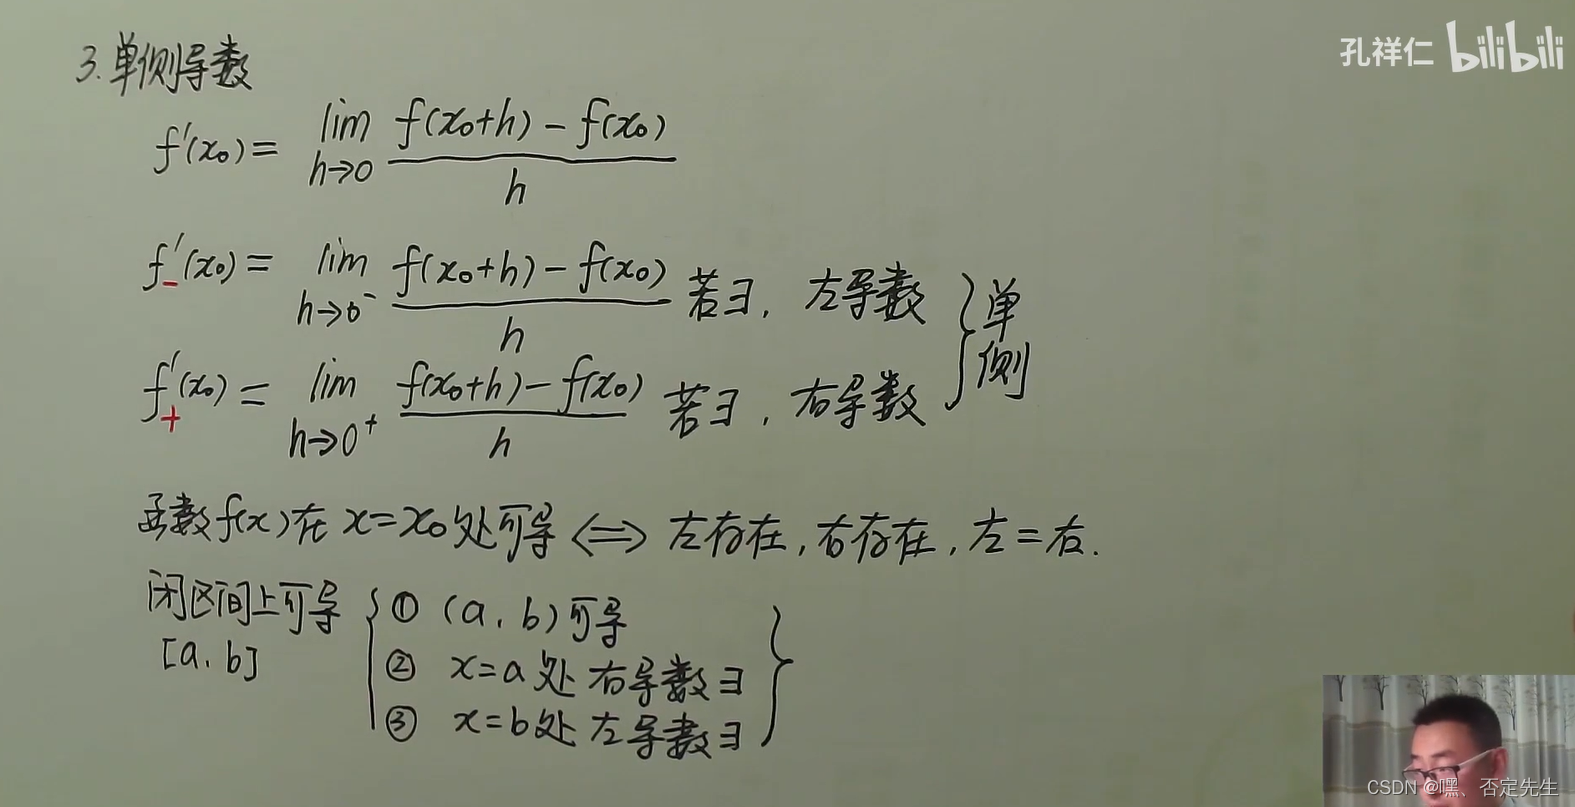 孔祥仁 bilibili
3. 单侧导数
f'(x₀) = lim h→0 f(x₀+h) - f(x₀) / h
f'₋(x₀) = lim h→0⁻ f(x₀+h) - f(x₀) / h 若∃, 左导数
f'₊(x₀) = lim h→0⁺ f(x₀+h) - f(x₀) / h 若∃, 右导数
} 单侧
函数f(x)在x=x₀处可导 ⟺ 左存在, 右存在, 左=右.
闭区间上可导 [a, b]
{ ① (a, b)可导
② x=a处右导数∃
③ x=b处左导数∃ }
CSDN @嘿、否定先生